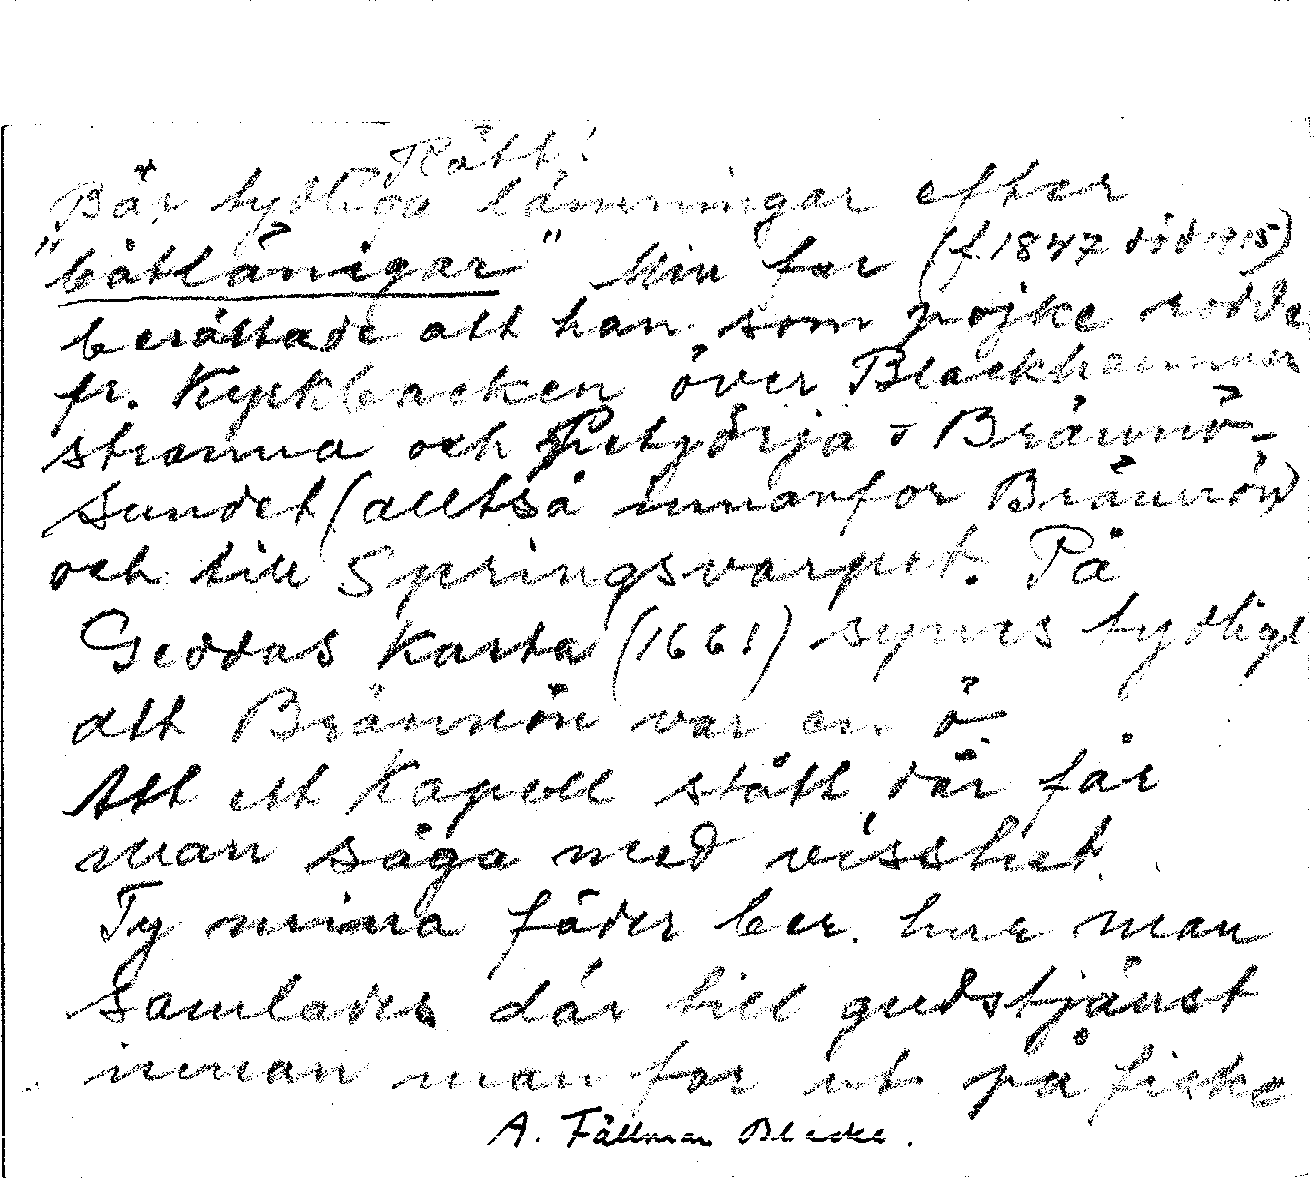 Rätt!
Bär tydliga lämningar efter
"båtlänigar" Min far (f. 1847 död 1915)
berättade att han som pojke rodde
fr. Kyrkbacken över Blackhamner
stranna och i Brännö-
sundet (alltså innanför Brännön)
och till Springsvarpet. På
Geddas karta (1661) synes tydligt
att Brännön var en ö
Att ett Kapell stått där får
man säga med visshet.
Ty mina fäder ber. hur man
samlades där till gudstjänst
innan man for ut på fiske
A. Fällman Blacke.